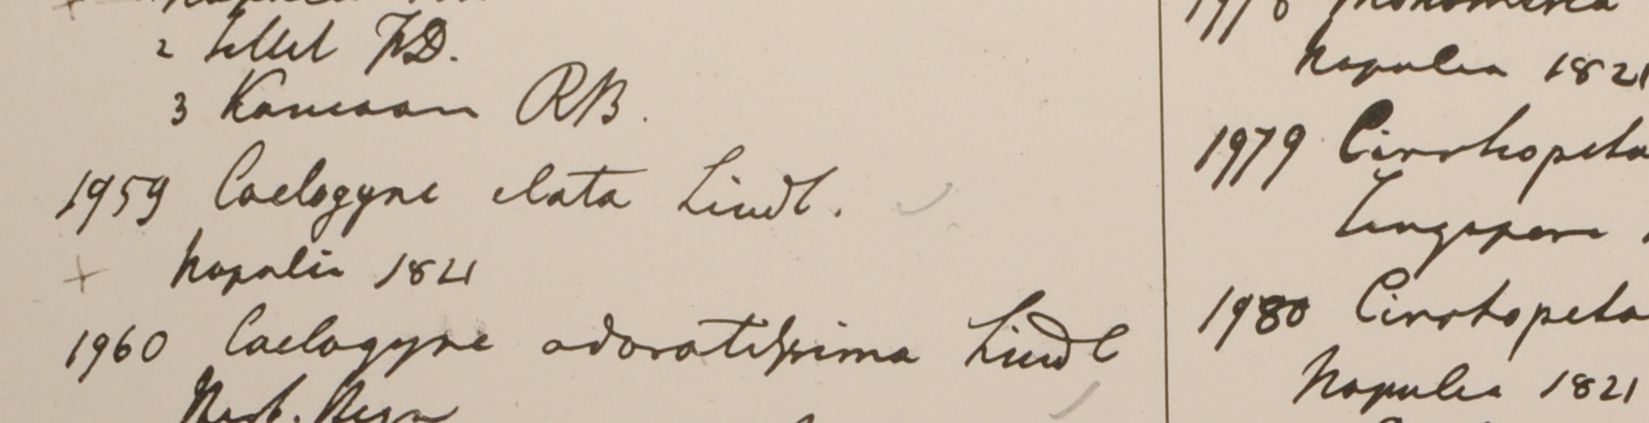 2 Sillet FD.
3 Kamaoon RB.
1959 Coelogyne elata Lindl.
+ Napalia 1821
1960 Coelogyne odoratissima Lindl
Herb.
1978
Napalia 1821
1979 Cirrhopeta
Singapore
1980 Cirrhopeta
Napalia 1821